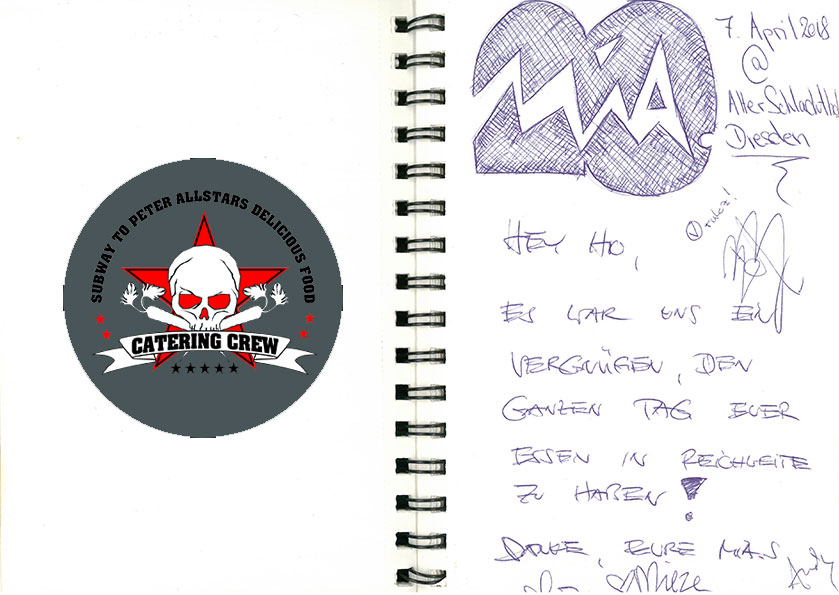 SUBWAY TO PETER ALLSTARS DELICIOUS FOOD
CATERING CREW
20
MIA
7. April 2018
@
Alter Schlachth
Dresden
HEY HO,
ES WAR UNS EIN
VERGNÜGEN, DEN
GANZEN TAG EUER
ESSEN IN REICHWEITE
ZU HABEN!
DANKE, EURE MIA.
Mieze
Andy